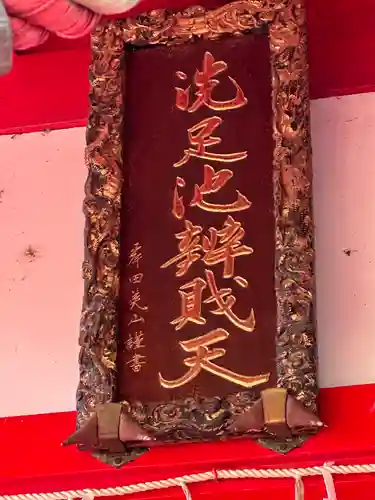 洗足池辨財天
澤田美山謹書